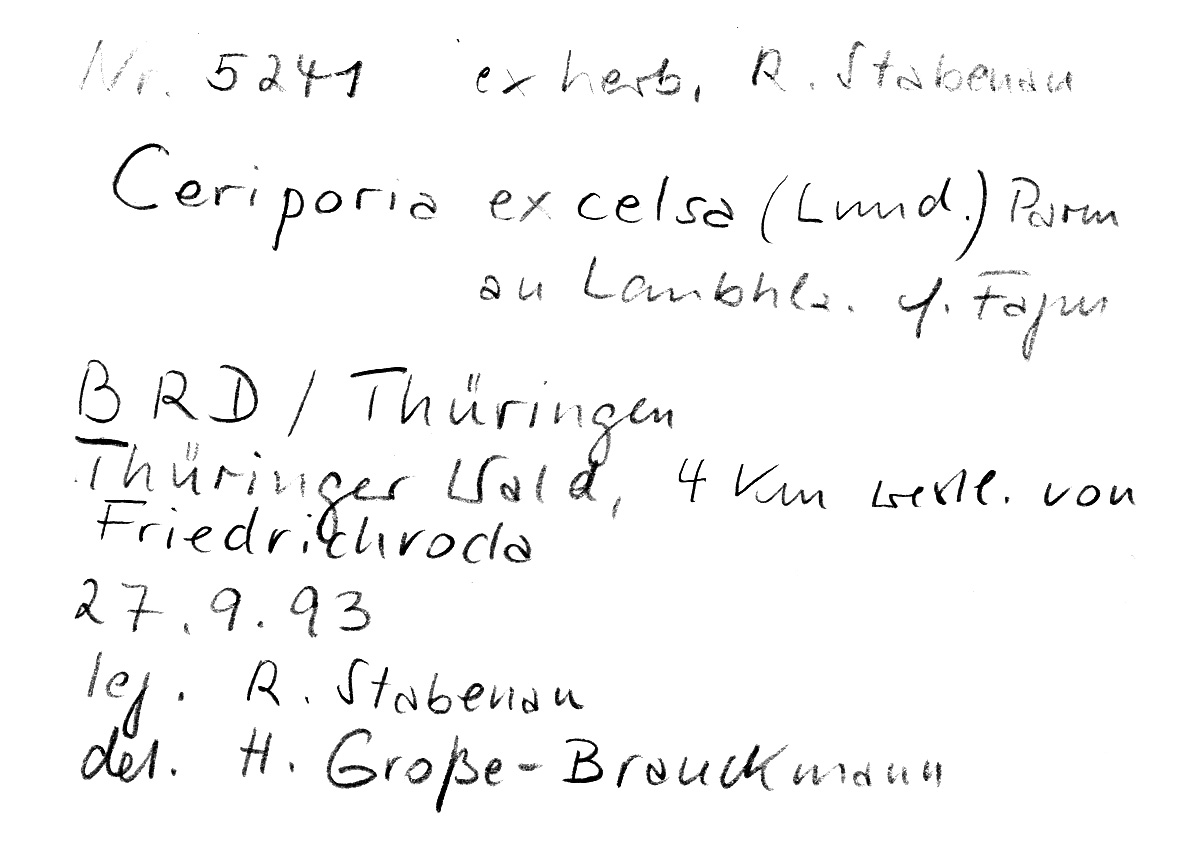 Nr. 5241 ex herb. R. Stabenau
Ceriporia excelsa (Lund.) Parm
an Laubhlz. cf. Fagus
BRD / Thüringen
Thüringer Wald, 4 km westl. von
Friedrichroda
27.9.93
leg. R. Stabenau
det. H. Große-Brauckmann